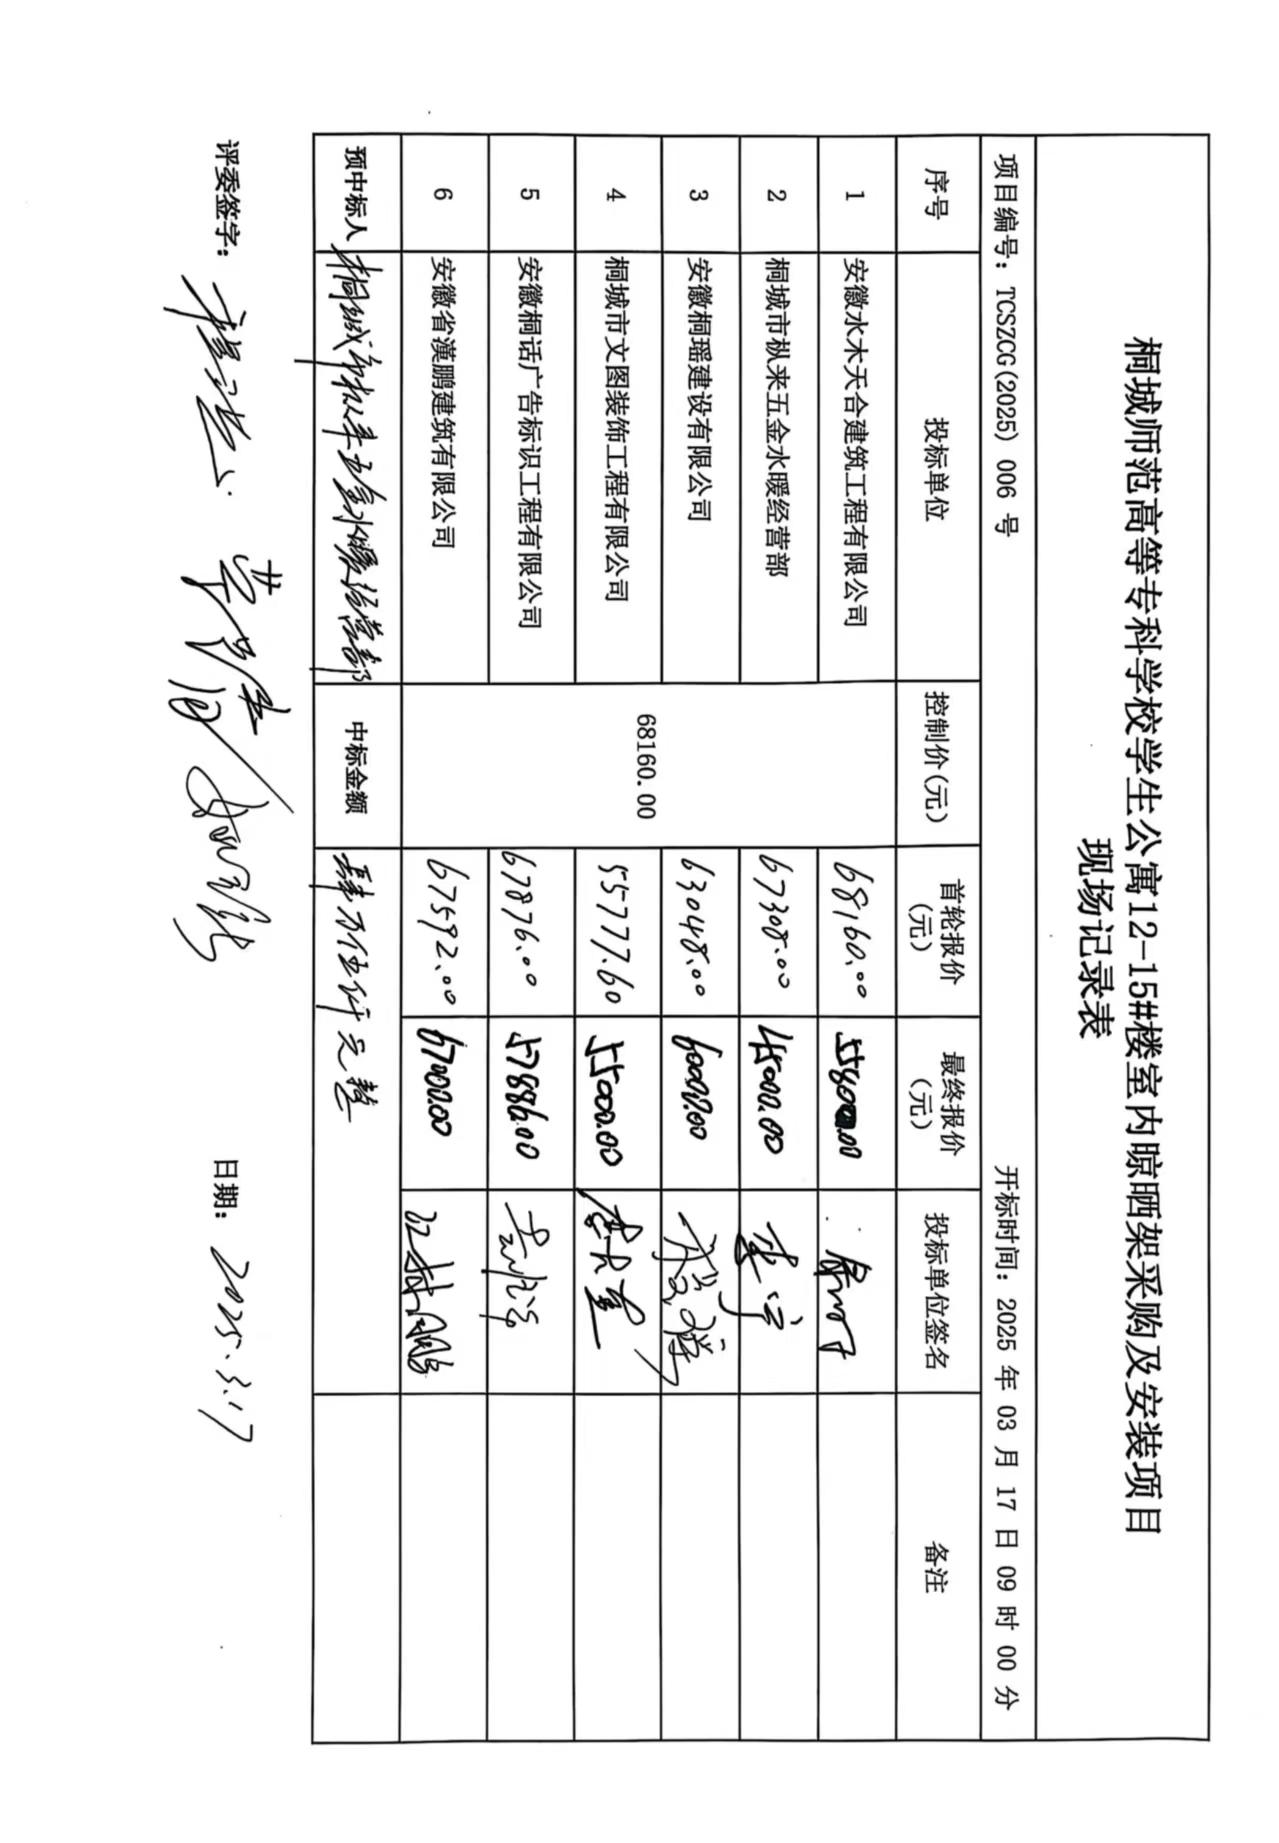 桐城师范高等专科学校学生公寓12-15#楼室内晾晒架采购及安装项目
现场记录表
项目编号：TCSZCG(2025) 006 号 开标时间：2025 年 03 月 17 日 09 时 00 分
序号 投标单位 控制价(元) 首轮报价(元) 最终报价(元) 投标单位签名 备注
1 安徽水木天合建筑工程有限公司 68160.00 68160.00
2 桐城市枞来五金水暖经营部 67308.00 45000.00
3 安徽桐瑶建设有限公司 63048.00 60000.00
4 桐城市文图装饰工程有限公司 55777.60 55000.00
5 安徽桐话广告标识工程有限公司 67876.00 57886.00
6 安徽省漢鹏建筑有限公司 67592.00 67000.00
预中标人 桐城市枞来五金水暖经营部 中标金额 肆万伍仟元整
评委签字： 日期：2025.3.17